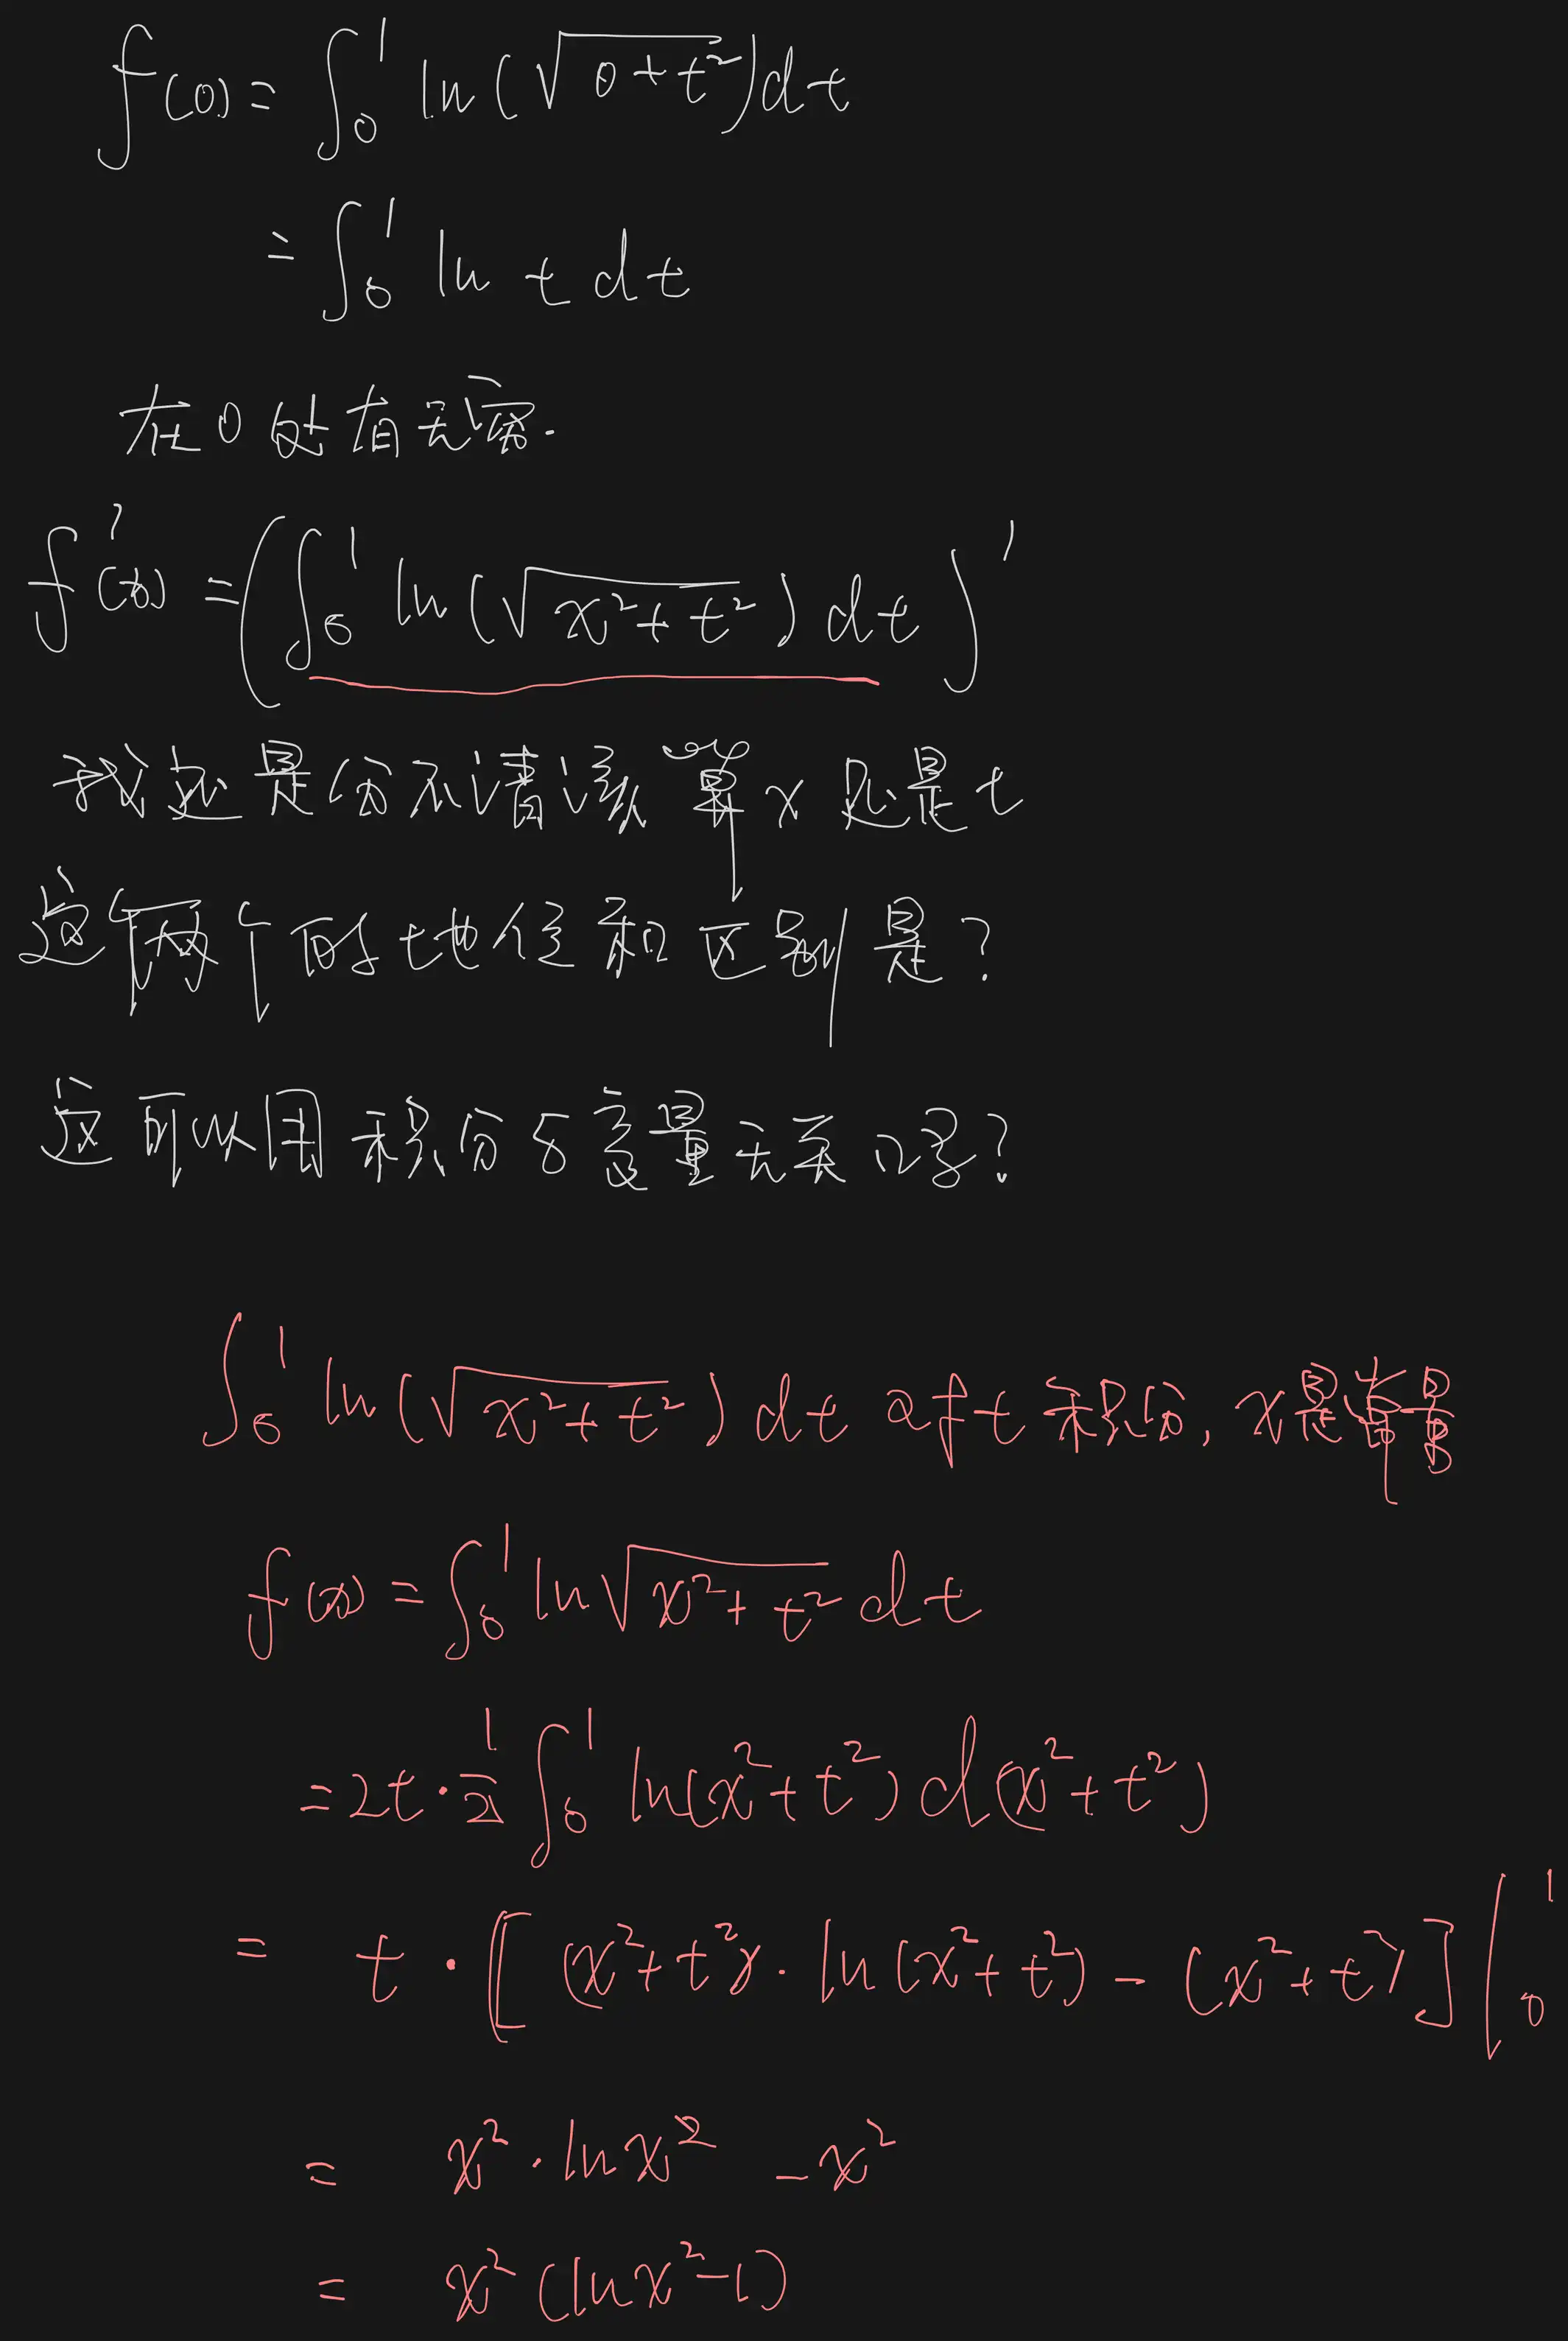 f(0) = ∫₀¹ ln(√(0+t²))dt
= ∫₀¹ ln t dt
在0处有无窃.
f'(x) = (∫₀¹ ln(√(x²+t²)) dt)'
我还是分不清该算x还是t
这两个的t地位和区别是?
这可以用积分与变量无关吗?
∫₀¹ ln(√(x²+t²)) dt 对t积分, x是常量
f(x) = ∫₀¹ ln√(x²+t²) dt
= 2t·½ ∫₀¹ ln(x²+t²) d(x²+t²)
= t·[(x²+t²)·ln(x²+t²) - (x²+t²)]|₀¹
= x²·lnx² - x²
= x²(lnx²-1)